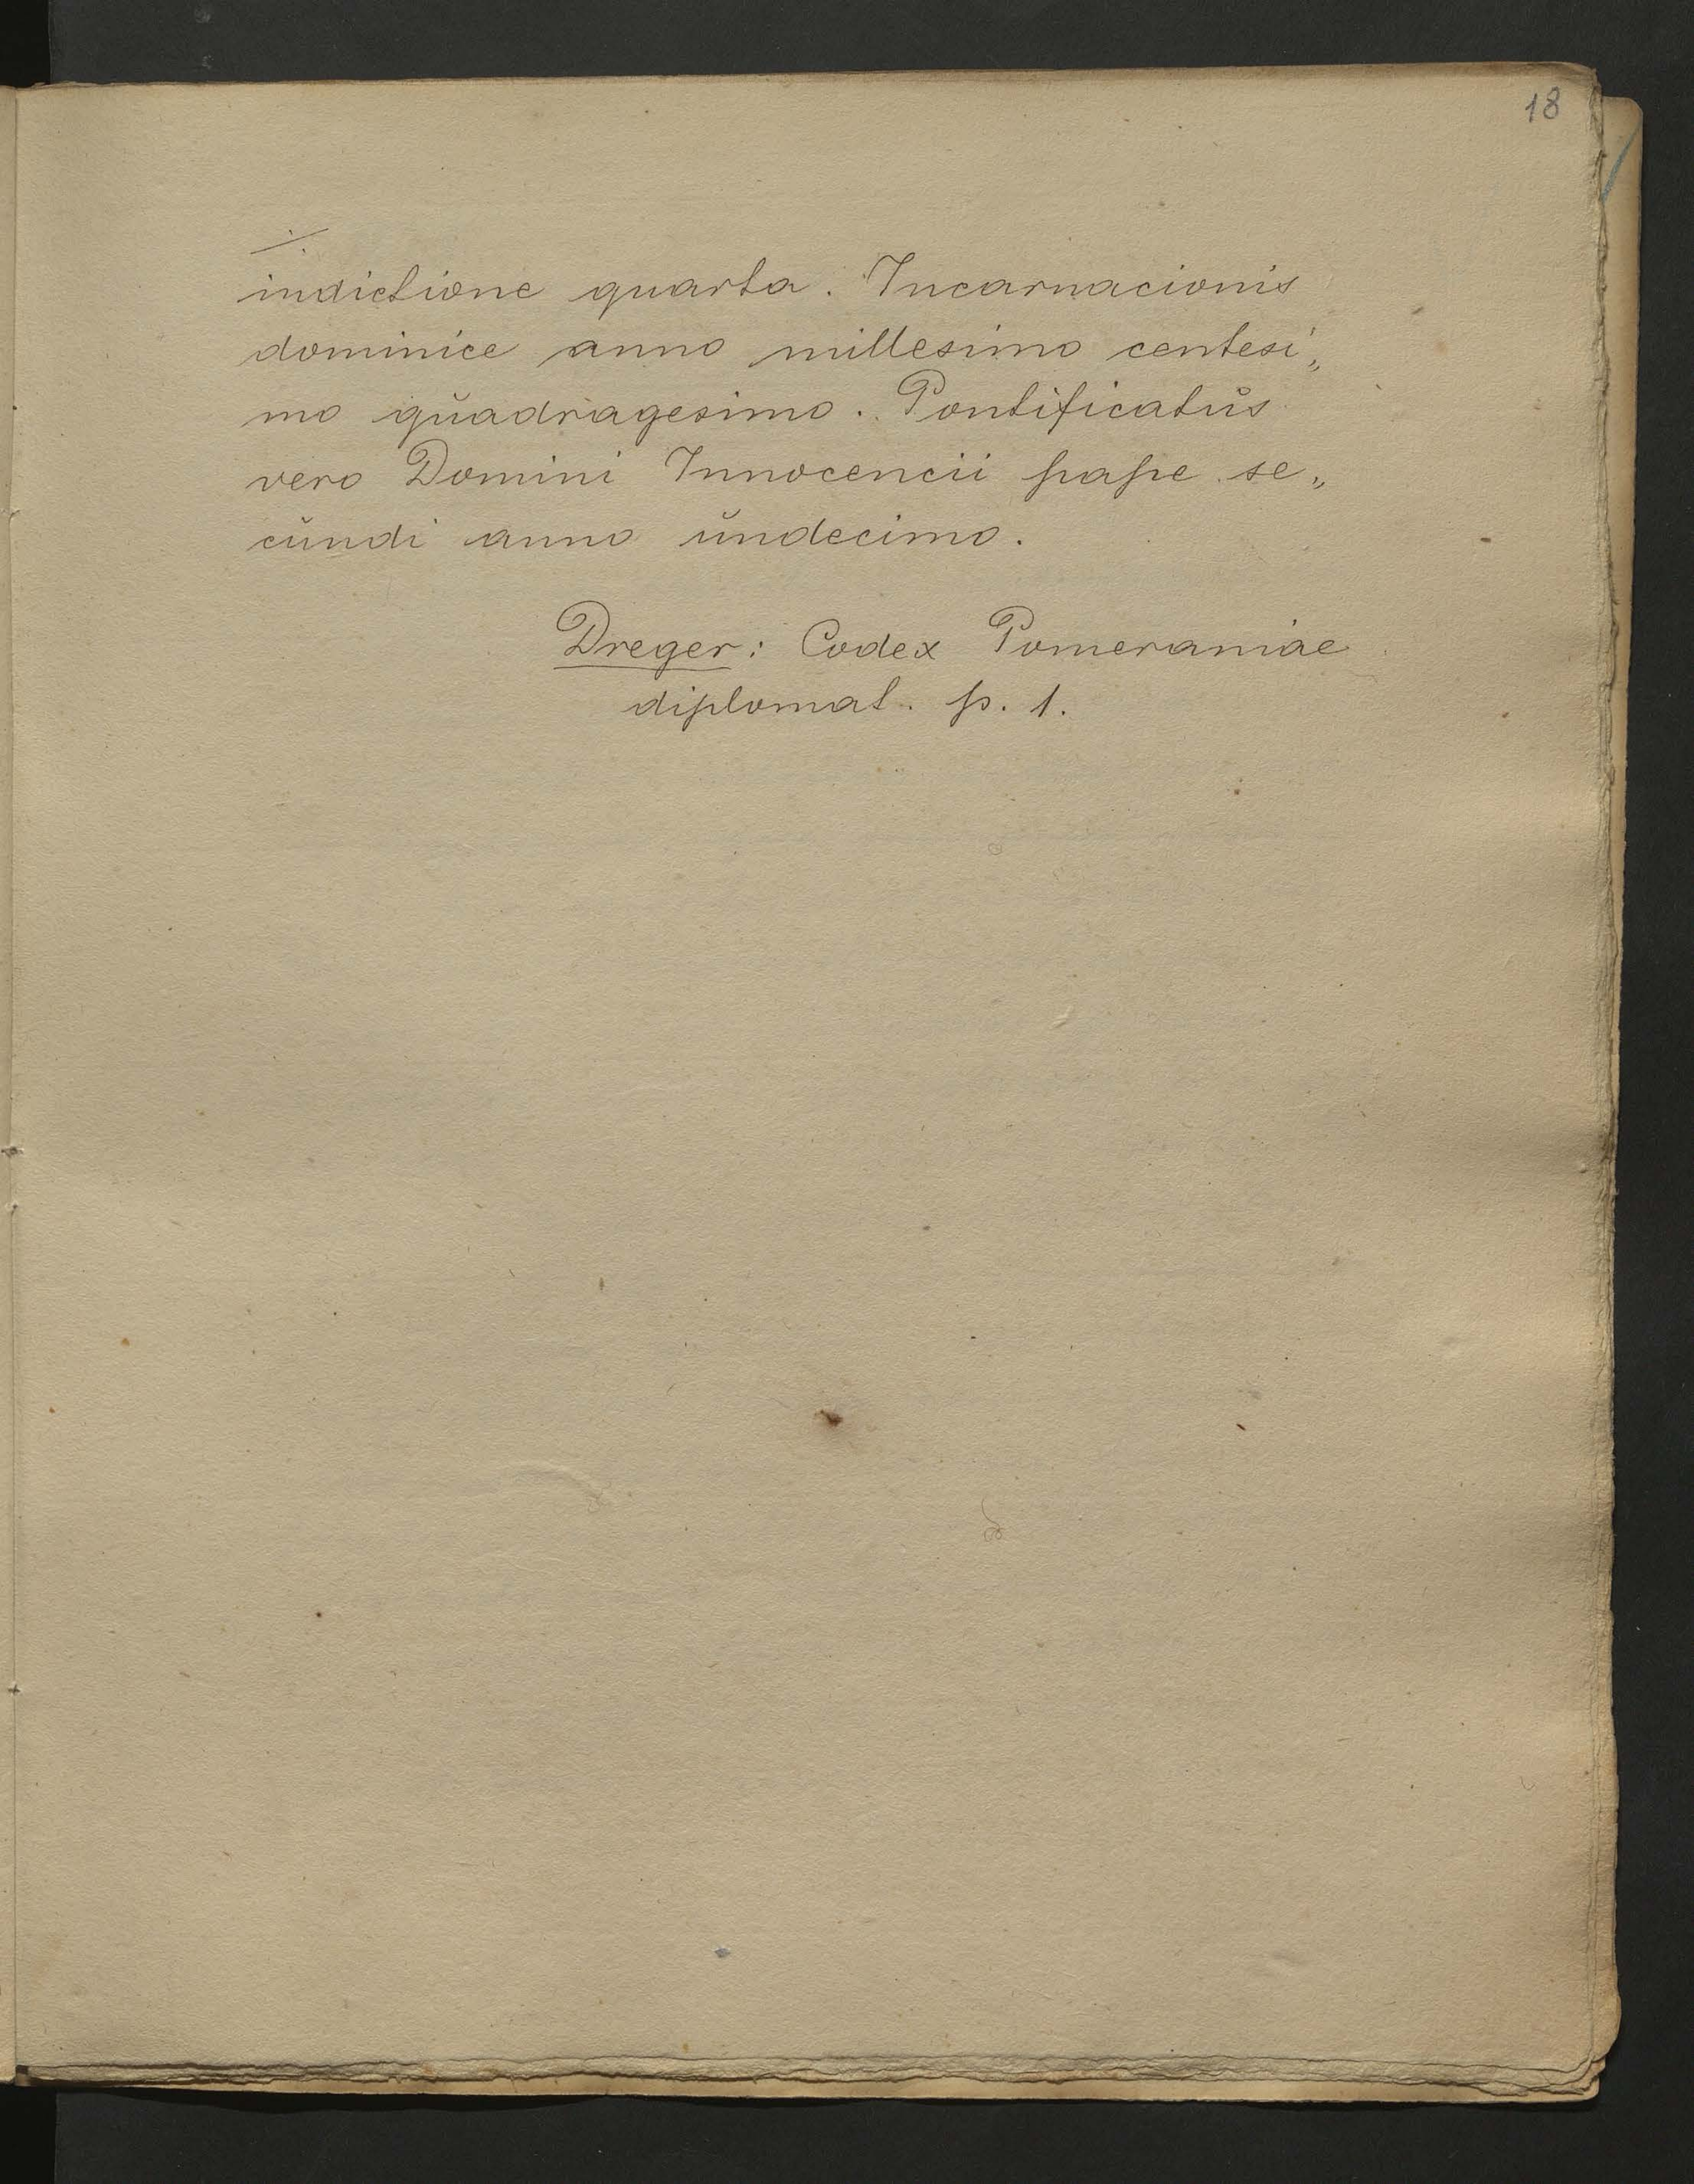 18
./.
indictione quarta. Incarnacionis
dominice anno millesimo centesi„
mo quadragesimo. Pontificatus
vero Domini Innocencii pape se„
cundi anno undecimo.
Dreger: Codex Pomeraniae
diplomat. p. 1.